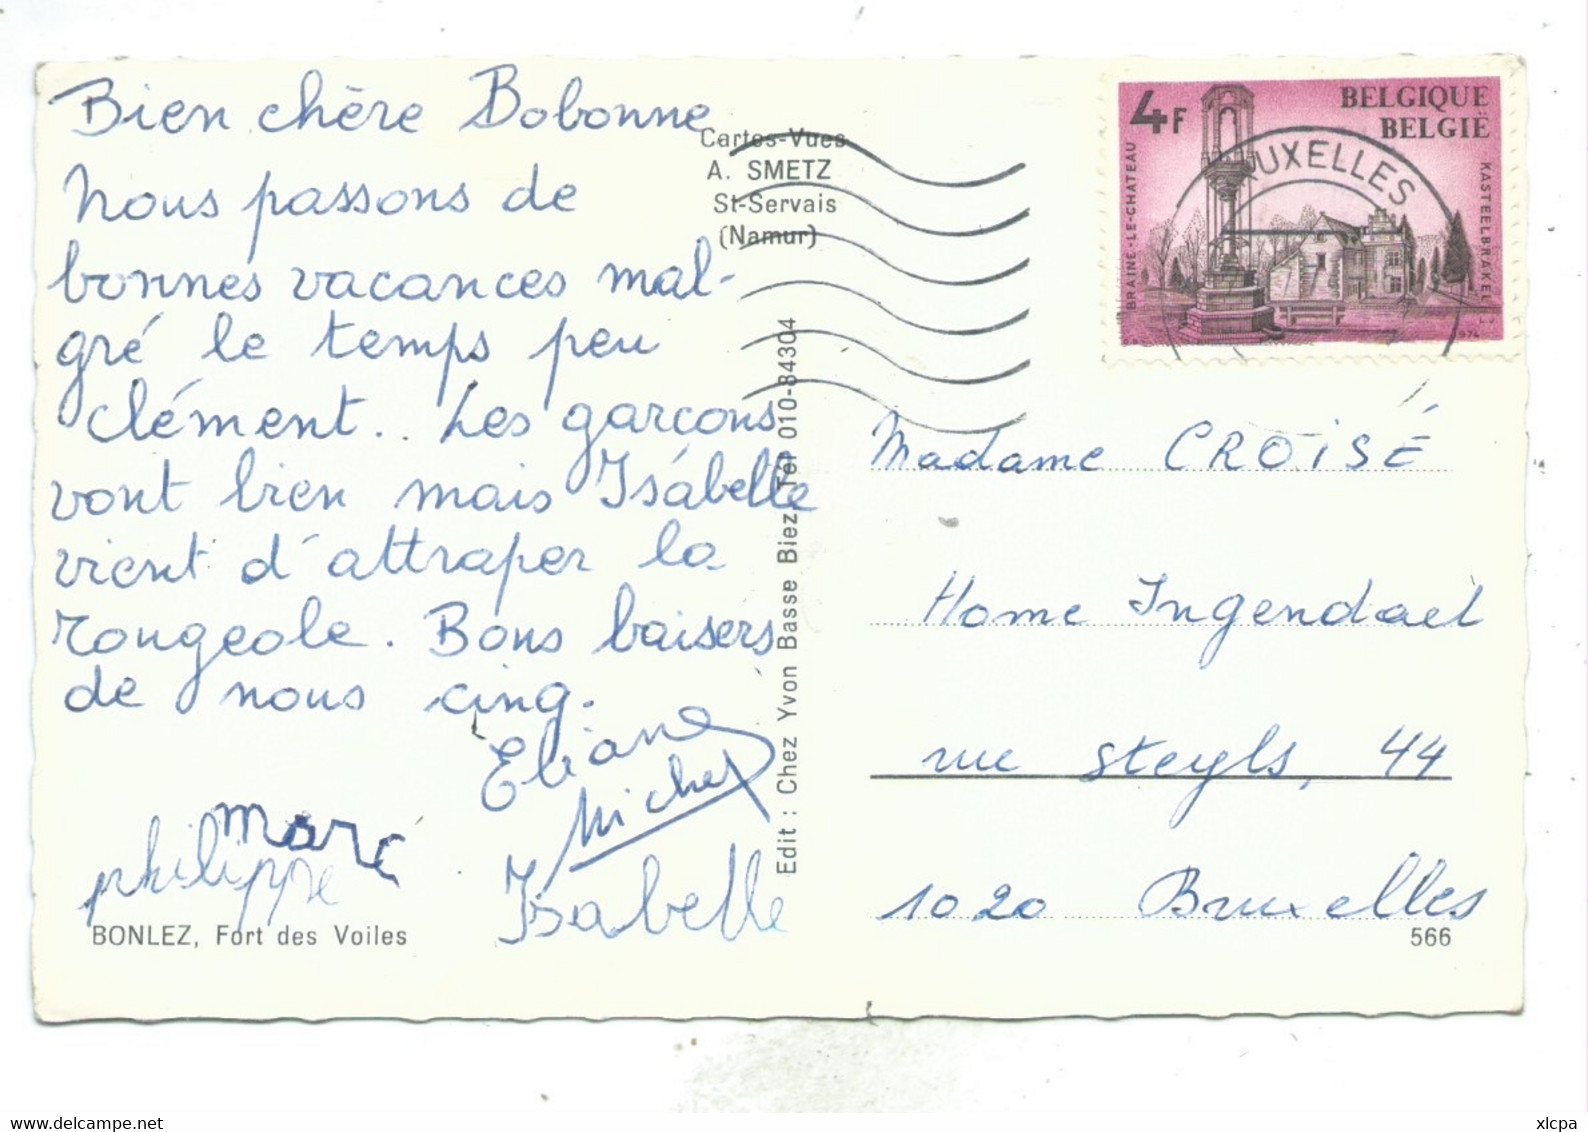 Bien chère Bobonne
Nous passons de
bonnes vacances mal-
gré le temps peu
clément.. Les garçons
vont bien mais Isabelle
vient d'attraper la
rougeole. Bons baisers
de nous cinq.
Eliane
Michel
marc
philippe
Isabelle
BONLEZ, Fort des Voiles
Cartes-Vues
A. SMETZ
St-Servais
(Namur)
Edit : Chez Yvon Basse Biez Tél 010-84304
4F
BELGIQUE
BELGIË
BRAINE-LE-CHATEAU
KASTEELBRAKEL
1974
BRUXELLES
Madame CROISÉ
Home Ingendael
rue Steyls, 44
1020 Bruxelles
566
My collection - delcampe.net
xlcpa